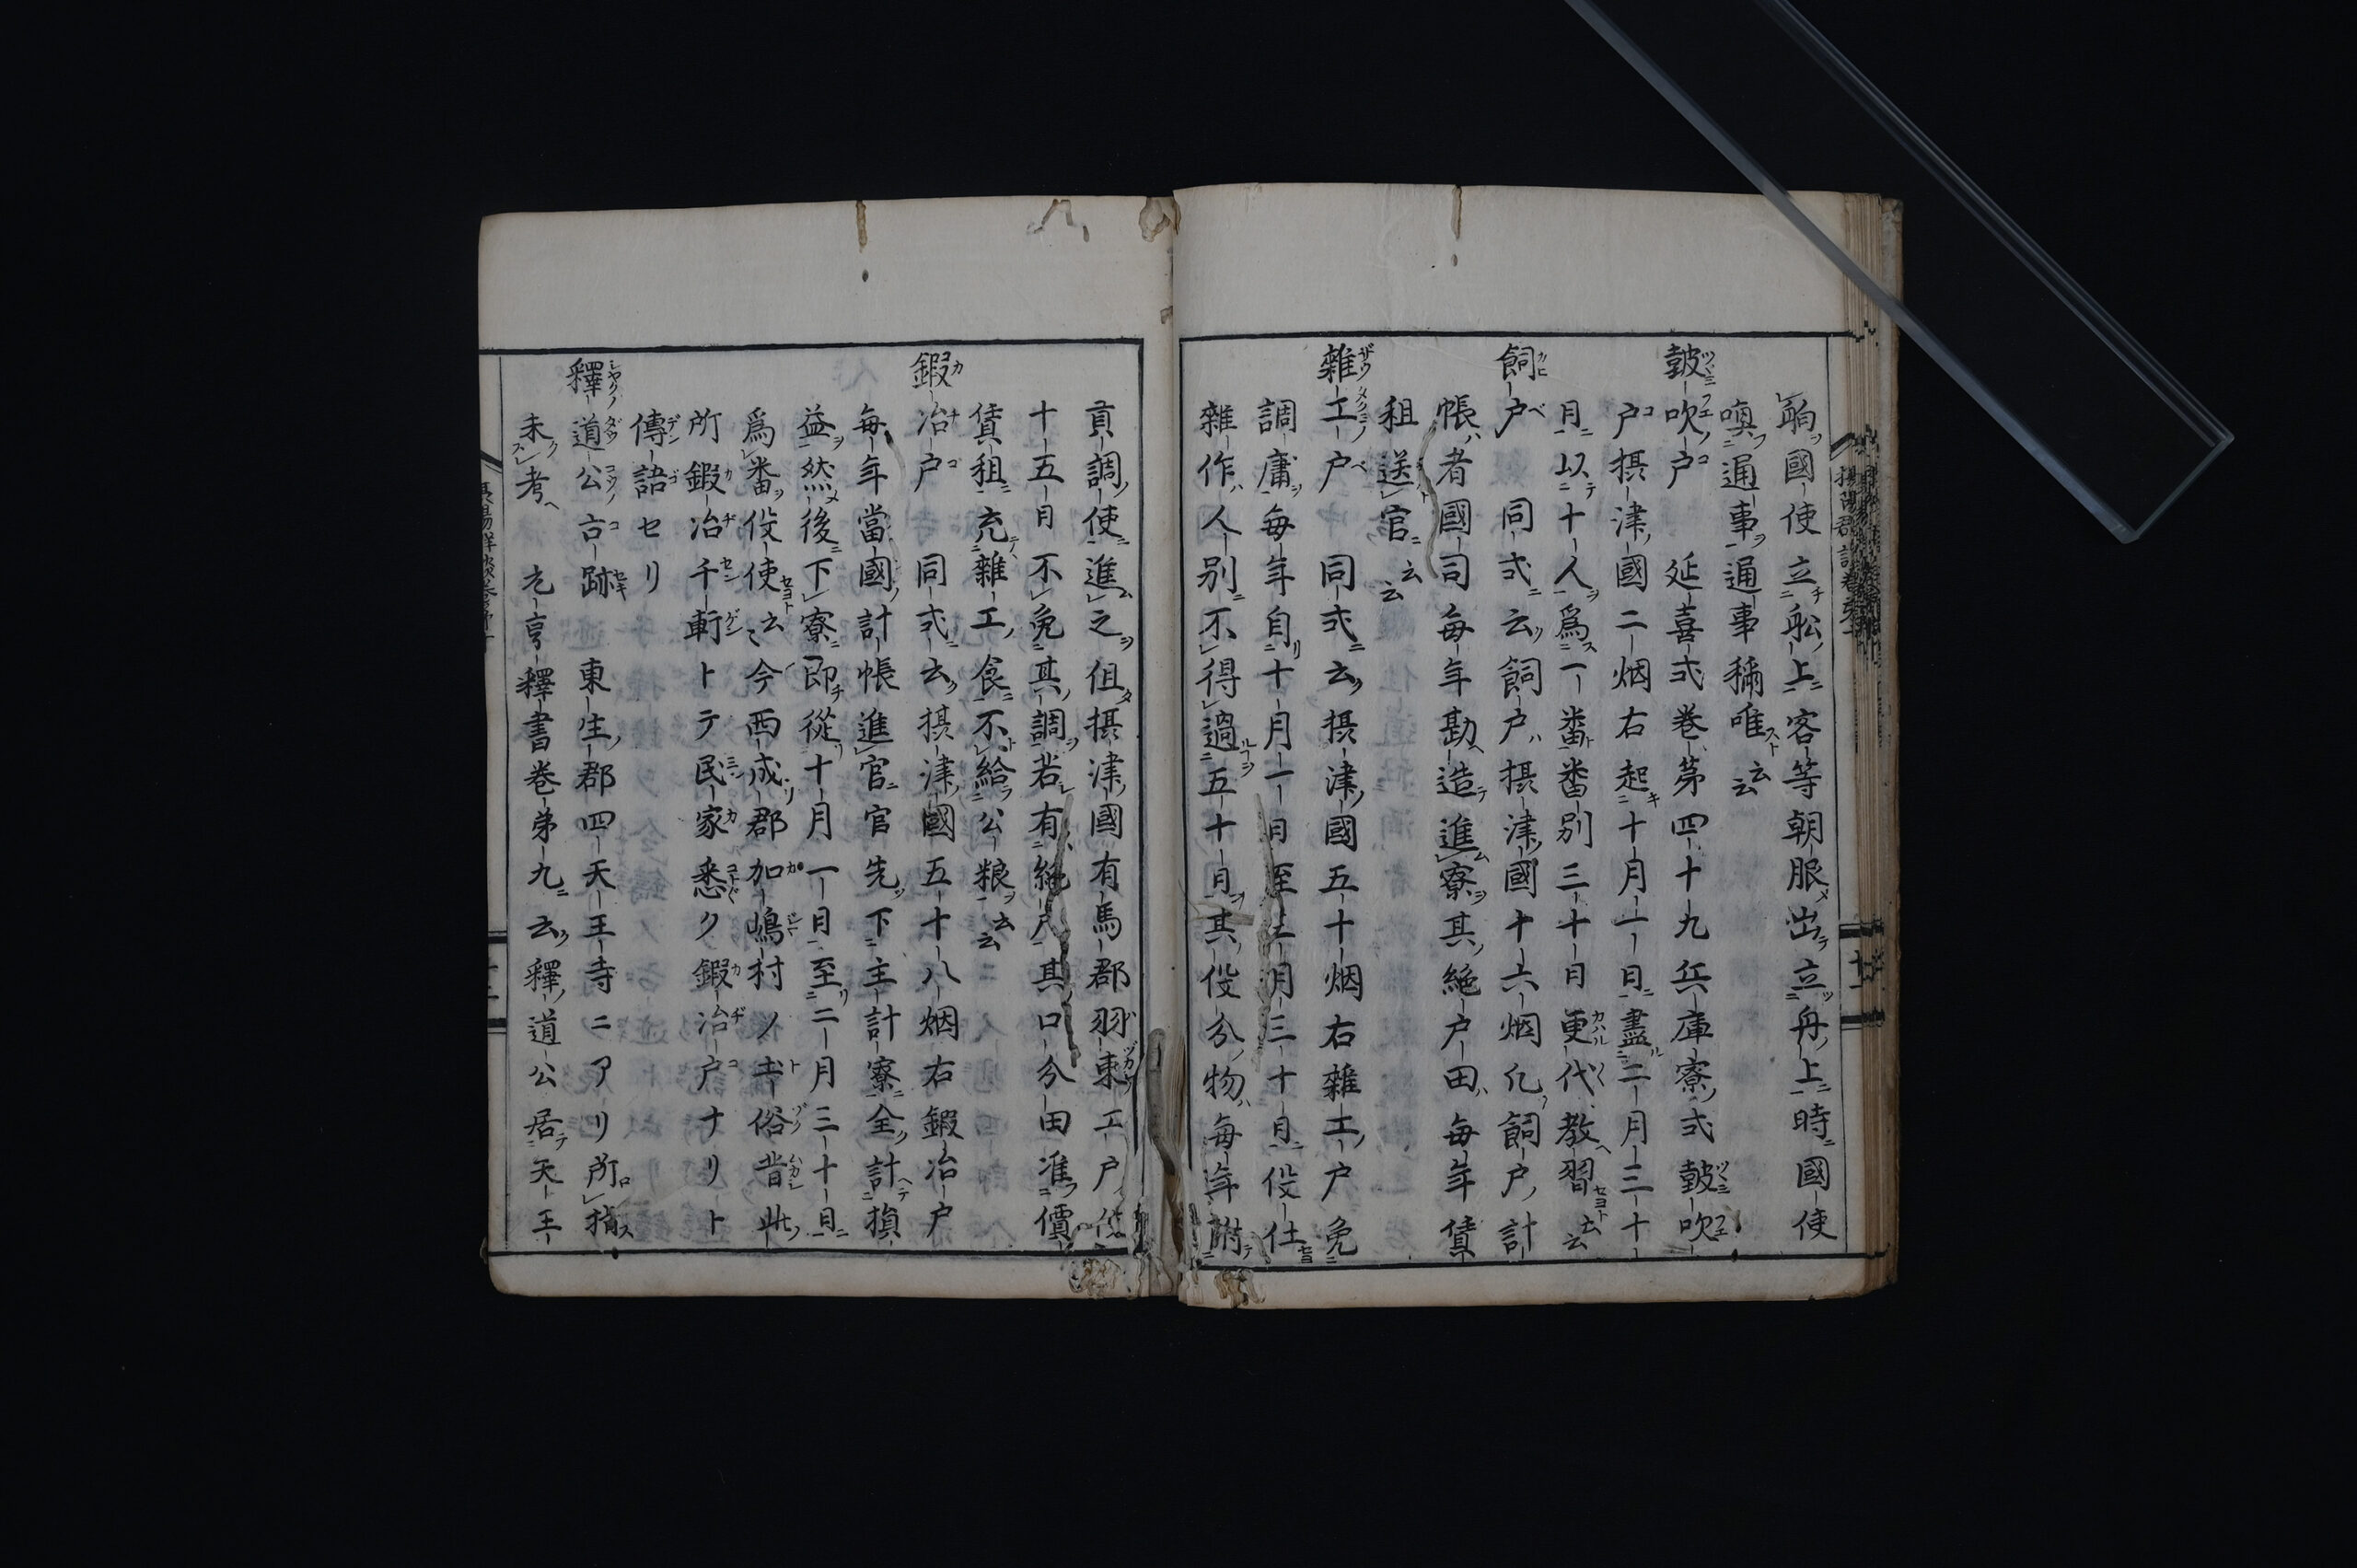 餉國使立舩上客等朝服出立舟上時國使
喚通事通事稱唯云云
鼓吹戸　延喜式巻第四十九兵庫寮式鼓吹
戸摂津國二烟右起十月一日盡二月三十
月以十人爲一番番別三十日更代教習云云
飼戸　同式云飼戸摂津國十六烟凡飼戸計
帳者國司毎年勘造進寮其絶戸田毎年賃
租送官云云
雜工戸　同式云摂津國五十烟右雜工戸免
調庸毎年自十月一日至三月三十日役仕
雜作人別不得過五十日其役分物毎年附
貢調使進之但摂津國有馬郡羽束工戸役
十五日不免其調若有絶戸其口分田准價
賃租充雜工食不給公粮云云
鍜冶戸　同式云摂津國五十八烟右鍜冶戸
毎年當國計帳進官官先下主計寮全計損
益然後下寮即從十月一日至二月三十日
爲番役使云云今西成郡加嶋村ノ土俗昔此
所鍜冶千軒トテ民家悉ク鍜冶戸ナリト
傳語セリ
釋道公古跡　東生郡四天王寺ニアリ所指
未考　元亨釋書巻第九云釋道公居天王